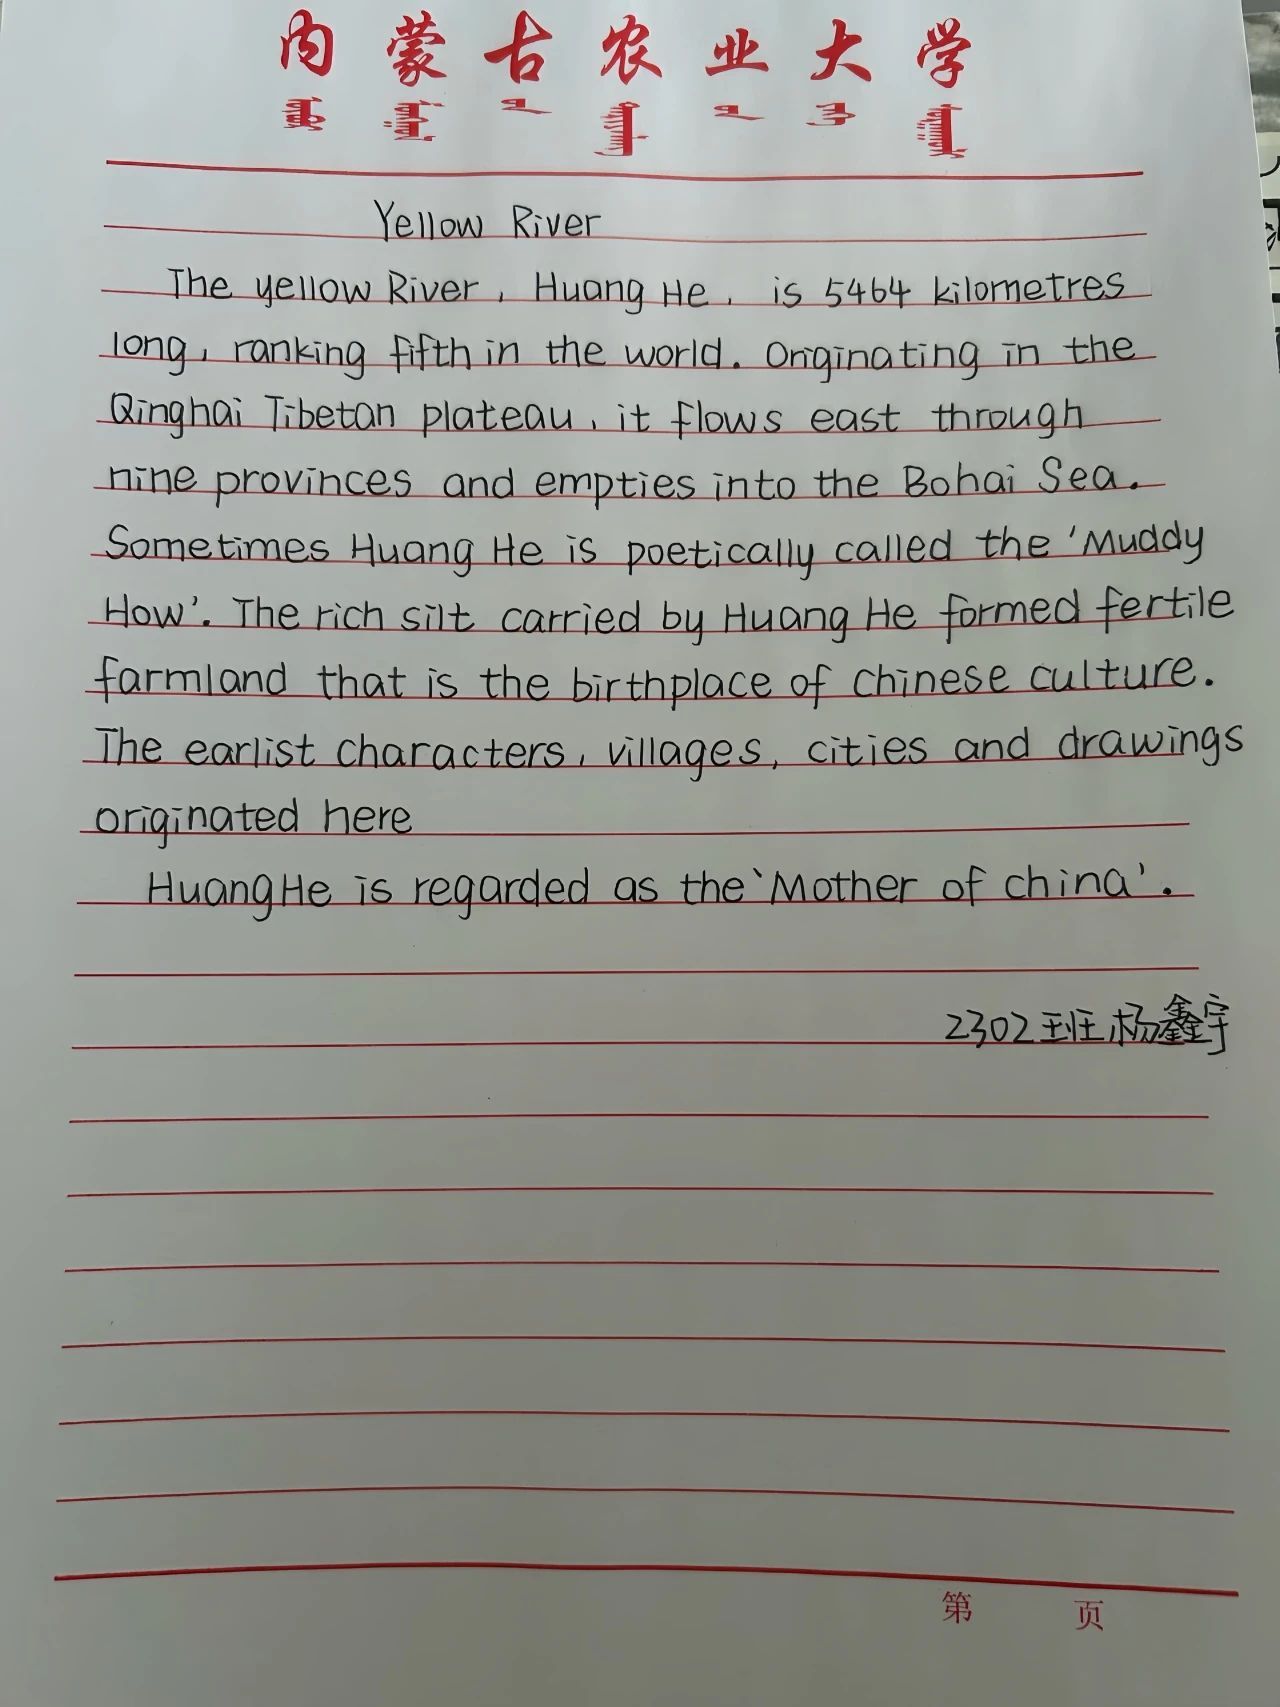 内蒙古农业大学
Yellow River
The yellow River, Huang He, is 5464 kilometres
long, ranking fifth in the world. Originating in the
Qinghai Tibetan plateau, it flows east through
nine provinces and empties into the Bohai Sea.
Sometimes Huang He is poetically called the 'Muddy
How'. The rich silt carried by Huang He formed fertile
farmland that is the birthplace of chinese culture.
The earlist characters, villages, cities and drawings
originated here
HuangHe is regarded as the 'Mother of china'.
2302班杨鑫宇
第 页